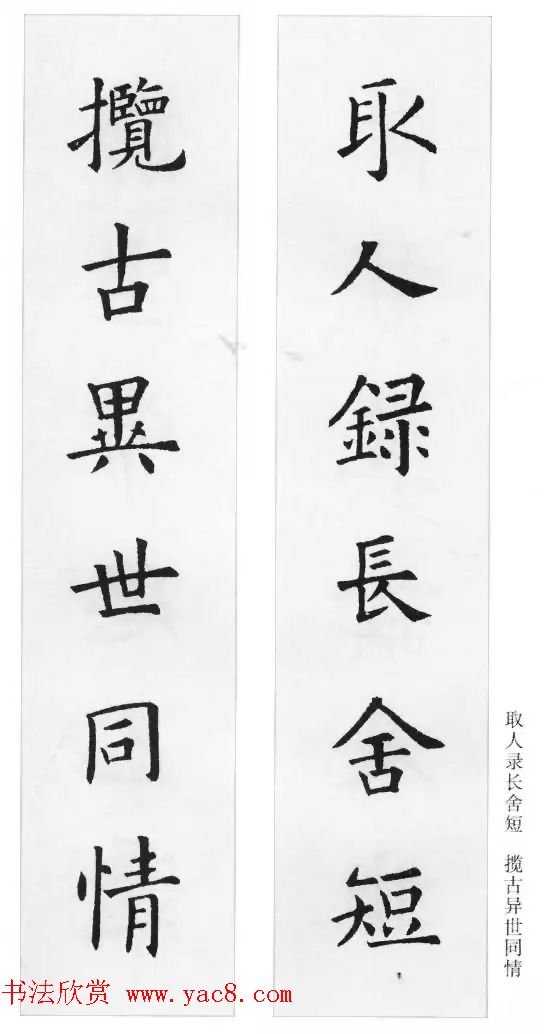 取人録長舍短
攬古異世同情
取人录长舍短　揽古异世同情
书法欣赏 www.yac8.com